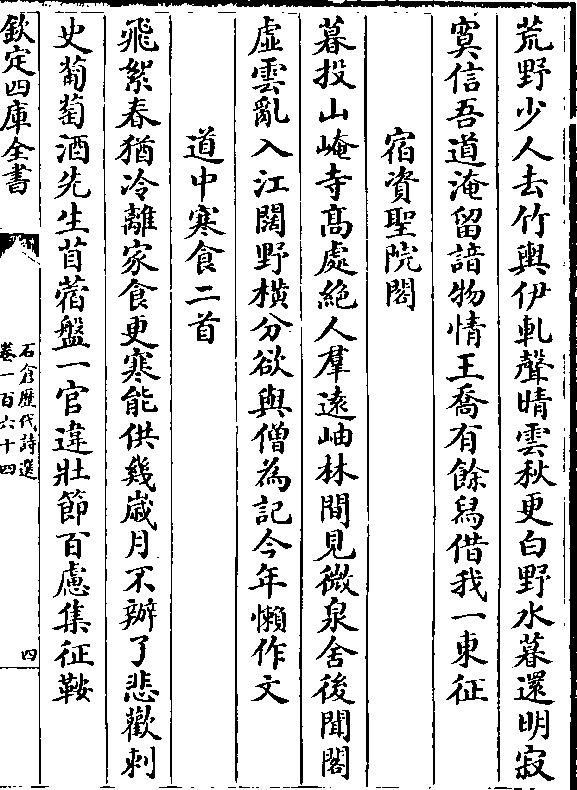 荒野少人去竹輿伊軋聲晴雲秋更白野水暮還明寂
寞信吾道淹留諳物情王喬有餘舄借我一東征
宿資聖院閣
暮投山崦寺髙處絶人羣遠岫林間見微泉舍後聞閣
虛雲亂入江闊野横分欲與僧為記今年懶作文
道中寒食二首
飛絮春猶冷離家食更寒能供幾歲月不辦了悲歡刺
史葡萄酒先生苜蓿盤一官違壯節百慮集征鞍
欽定四庫全書
石倉歷代詩選
卷一百六十四
四